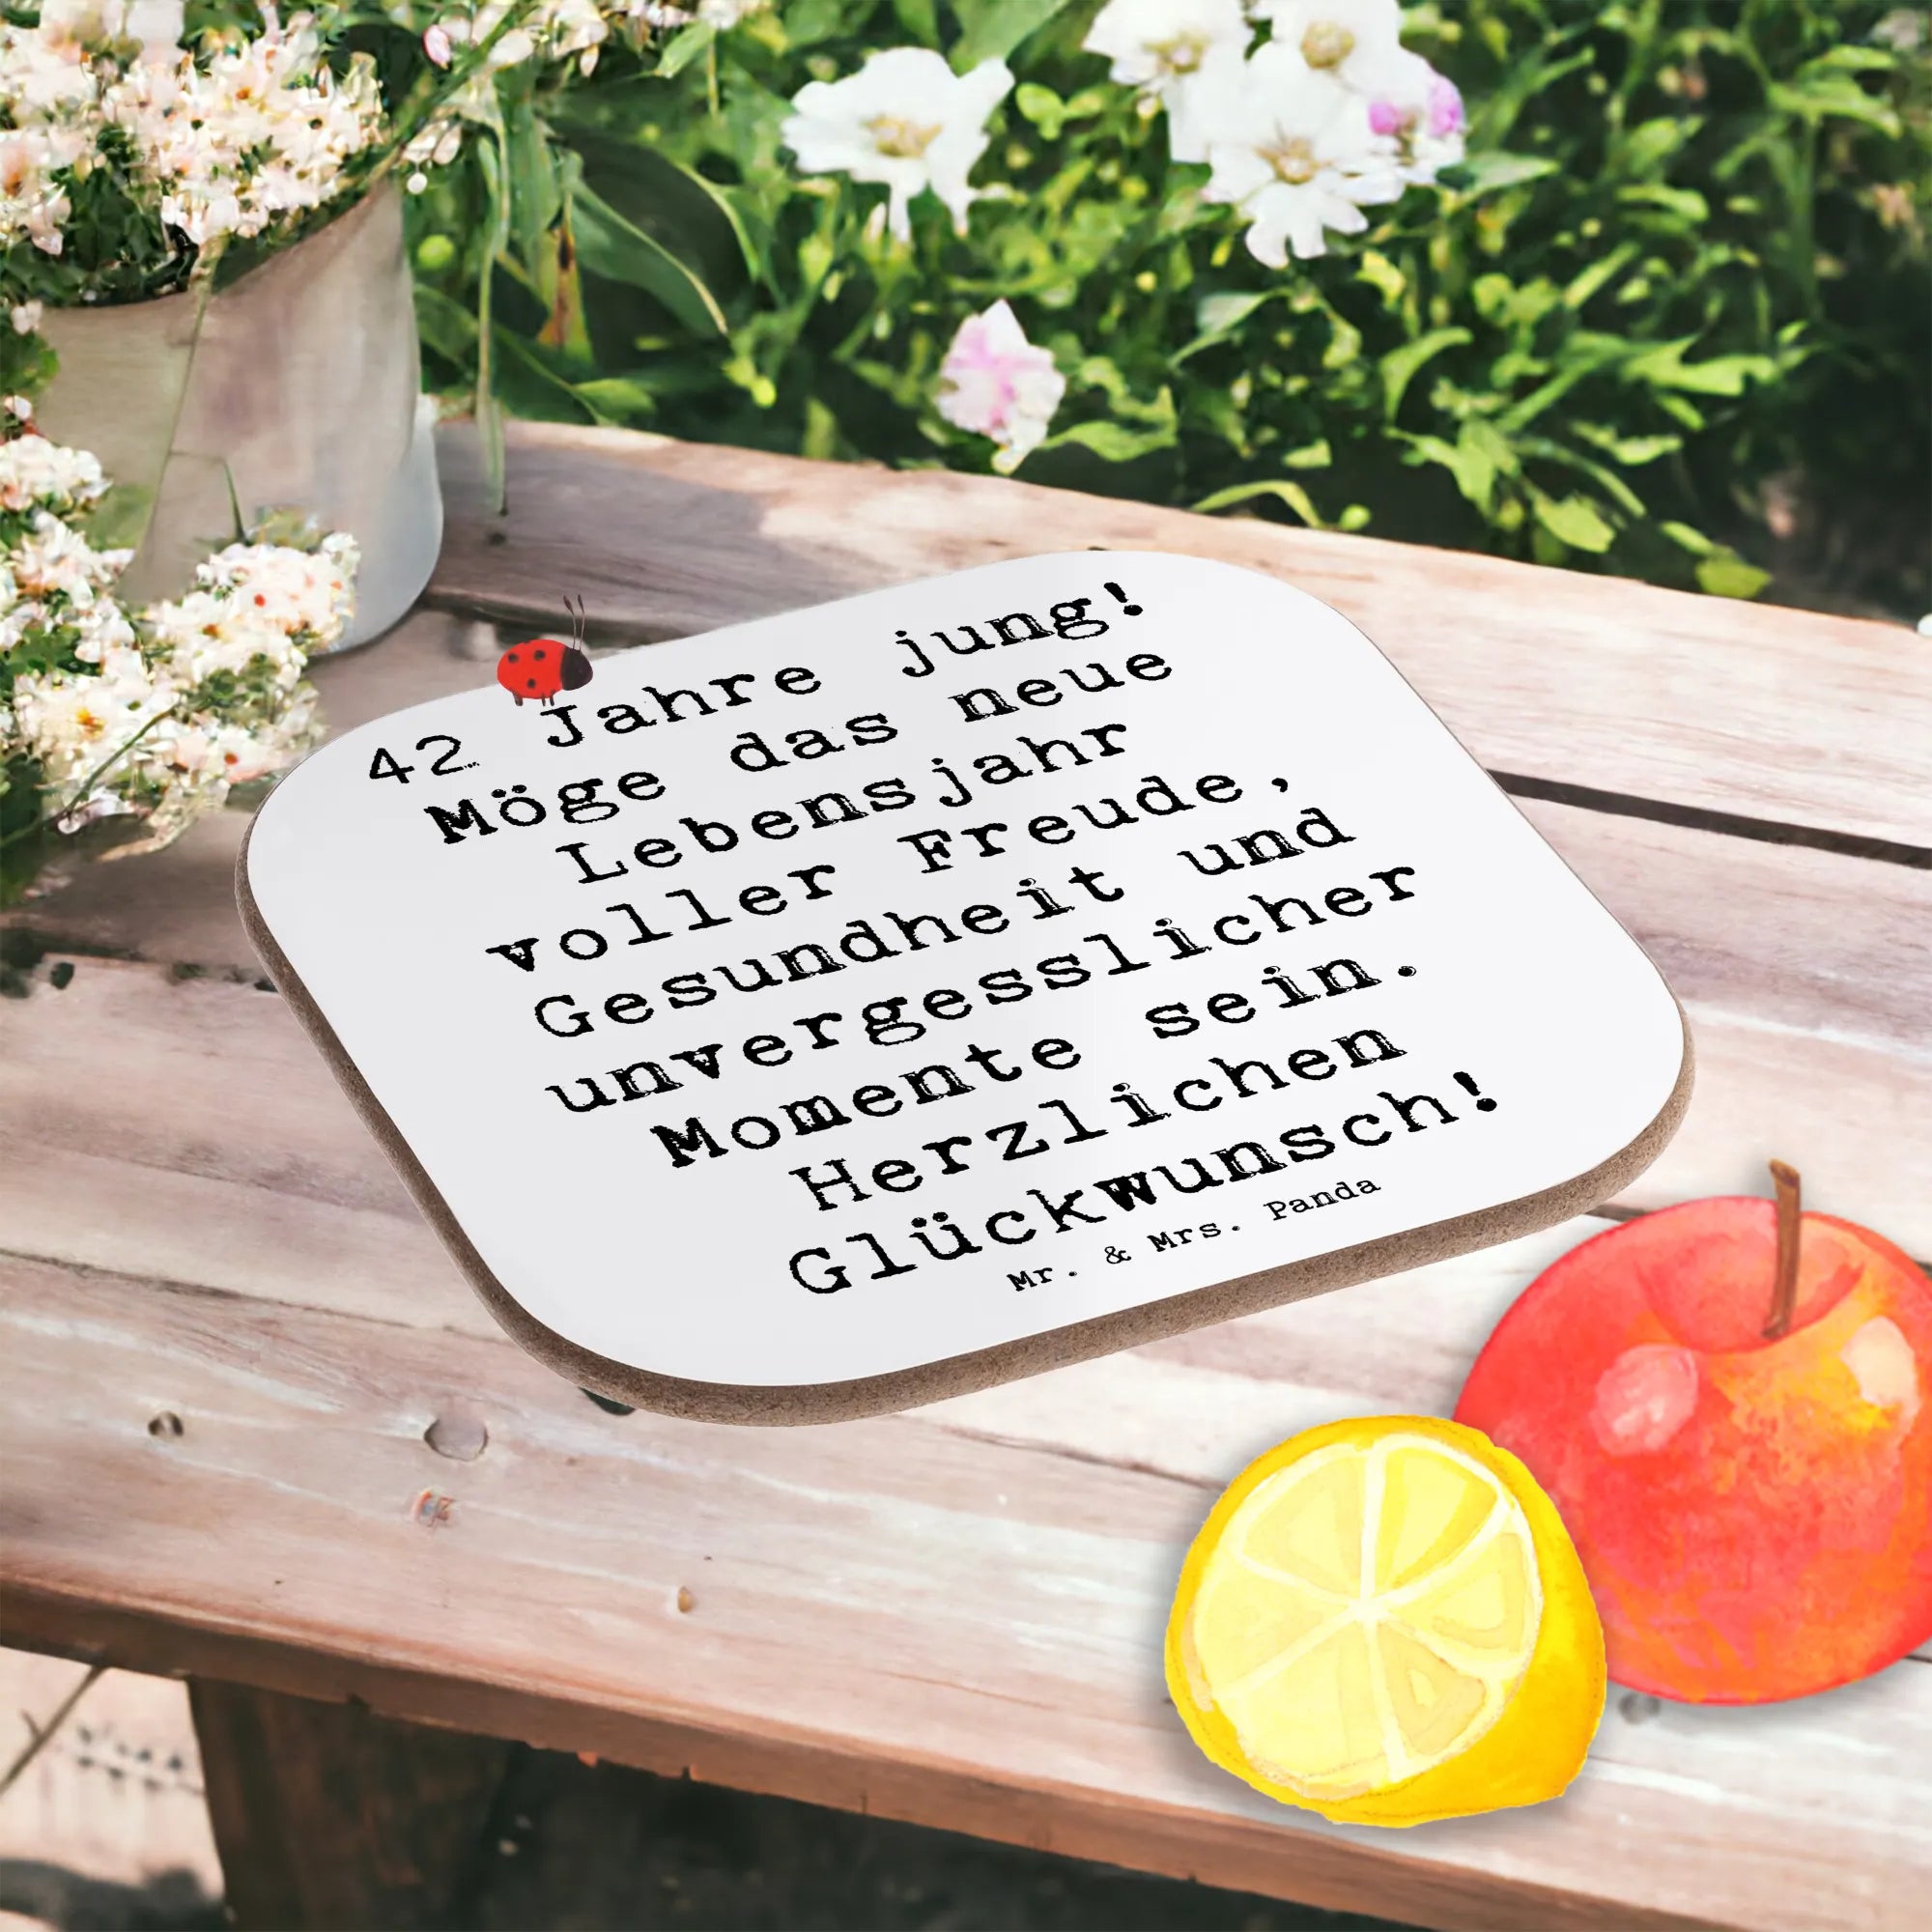 42 Jahre jung!
Möge das neue
Lebensjahr
voller Freude,
Gesundheit und
unvergesslicher
Momente sein.
Herzlichen
Glückwunsch!
Mr. & Mrs. Panda